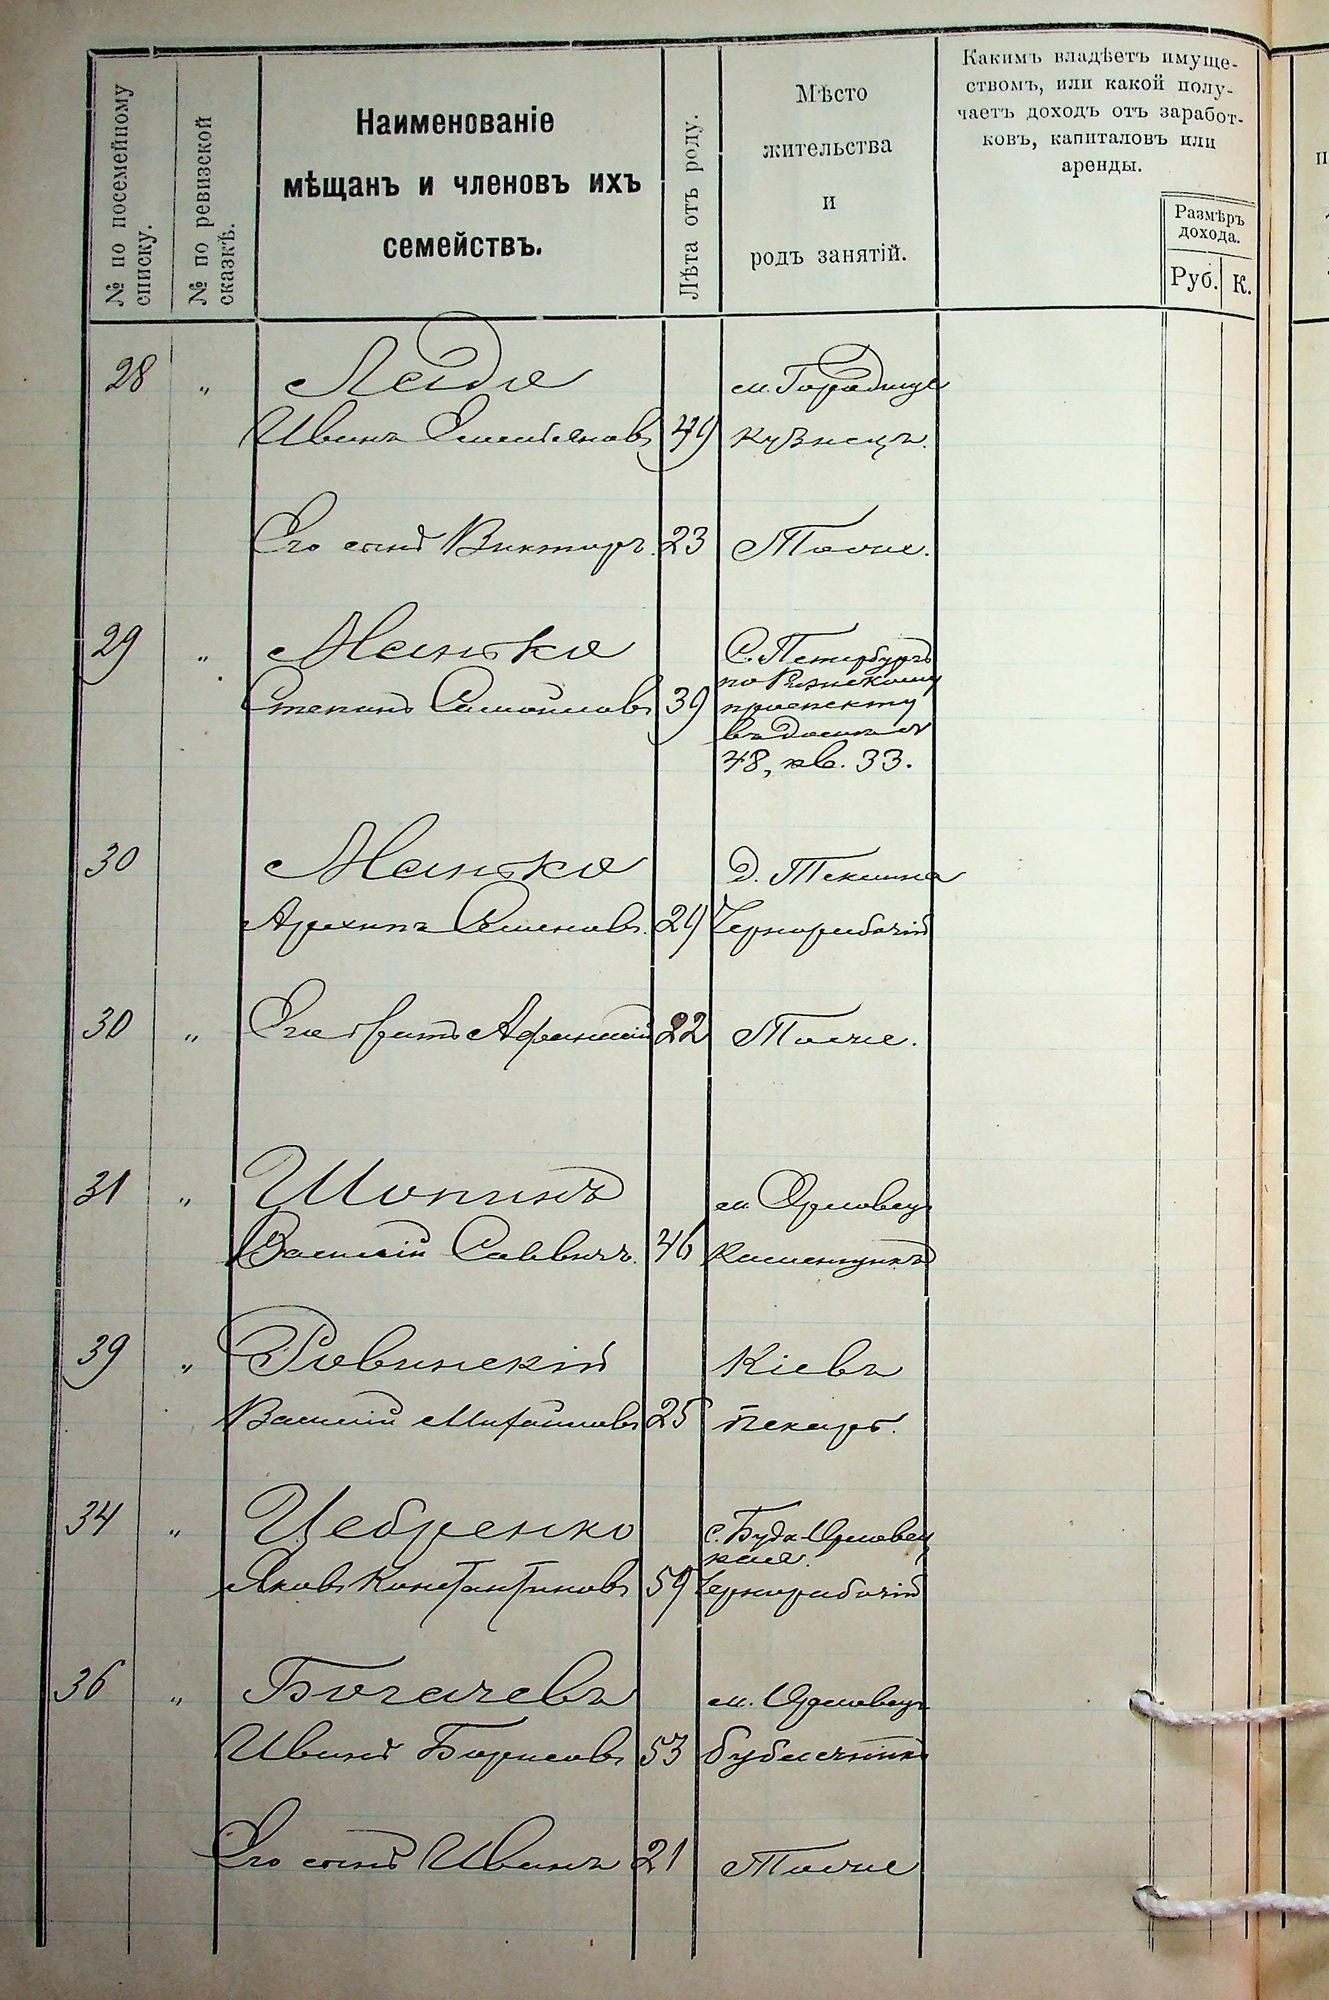 № по посемейному списку.
№ по ревизской сказкѣ.
Наименованіе
мѣщанъ и членовъ ихъ
семействъ.
Лѣта отъ роду.
Мѣсто
жительства
и
родъ занятій.
Какимъ владѣетъ имуще-
ствомъ, или какой полу-
чаетъ доходъ отъ заработ-
ковъ, капиталовъ или
аренды.
Размѣръ
дохода.
Руб. К.
28 „ м. Городище
Иванъ Емельяновъ 49 кузнецъ.
Его сынъ Викторъ. 23 Тоже.
29 „ Манько С. Петербургъ
по Рижскому
Степанъ Самойловъ 39 проспекту
въ домѣ №
48, кв. 33.
30 Манько д. Теклина
Архипъ Семеновъ. 29 Чернорабочій
30 „ Его братъ Афанасій 22 Тоже.
31 „ Шопинъ м. Орловец
Василій Саввичъ. 46 Каменщикъ
39 „ Ровинскій Кіевъ
Василій Михайловъ 25 Пекарь.
34 „ Цебренко с. Буда-Орловец
кая.
Яковъ Константиновъ 59 Чернорабочій
36 „ Богачевъ м. Орловецъ
Иванъ Борисовъ 53 бубличникъ
Его сынъ Иванъ 21 Тоже